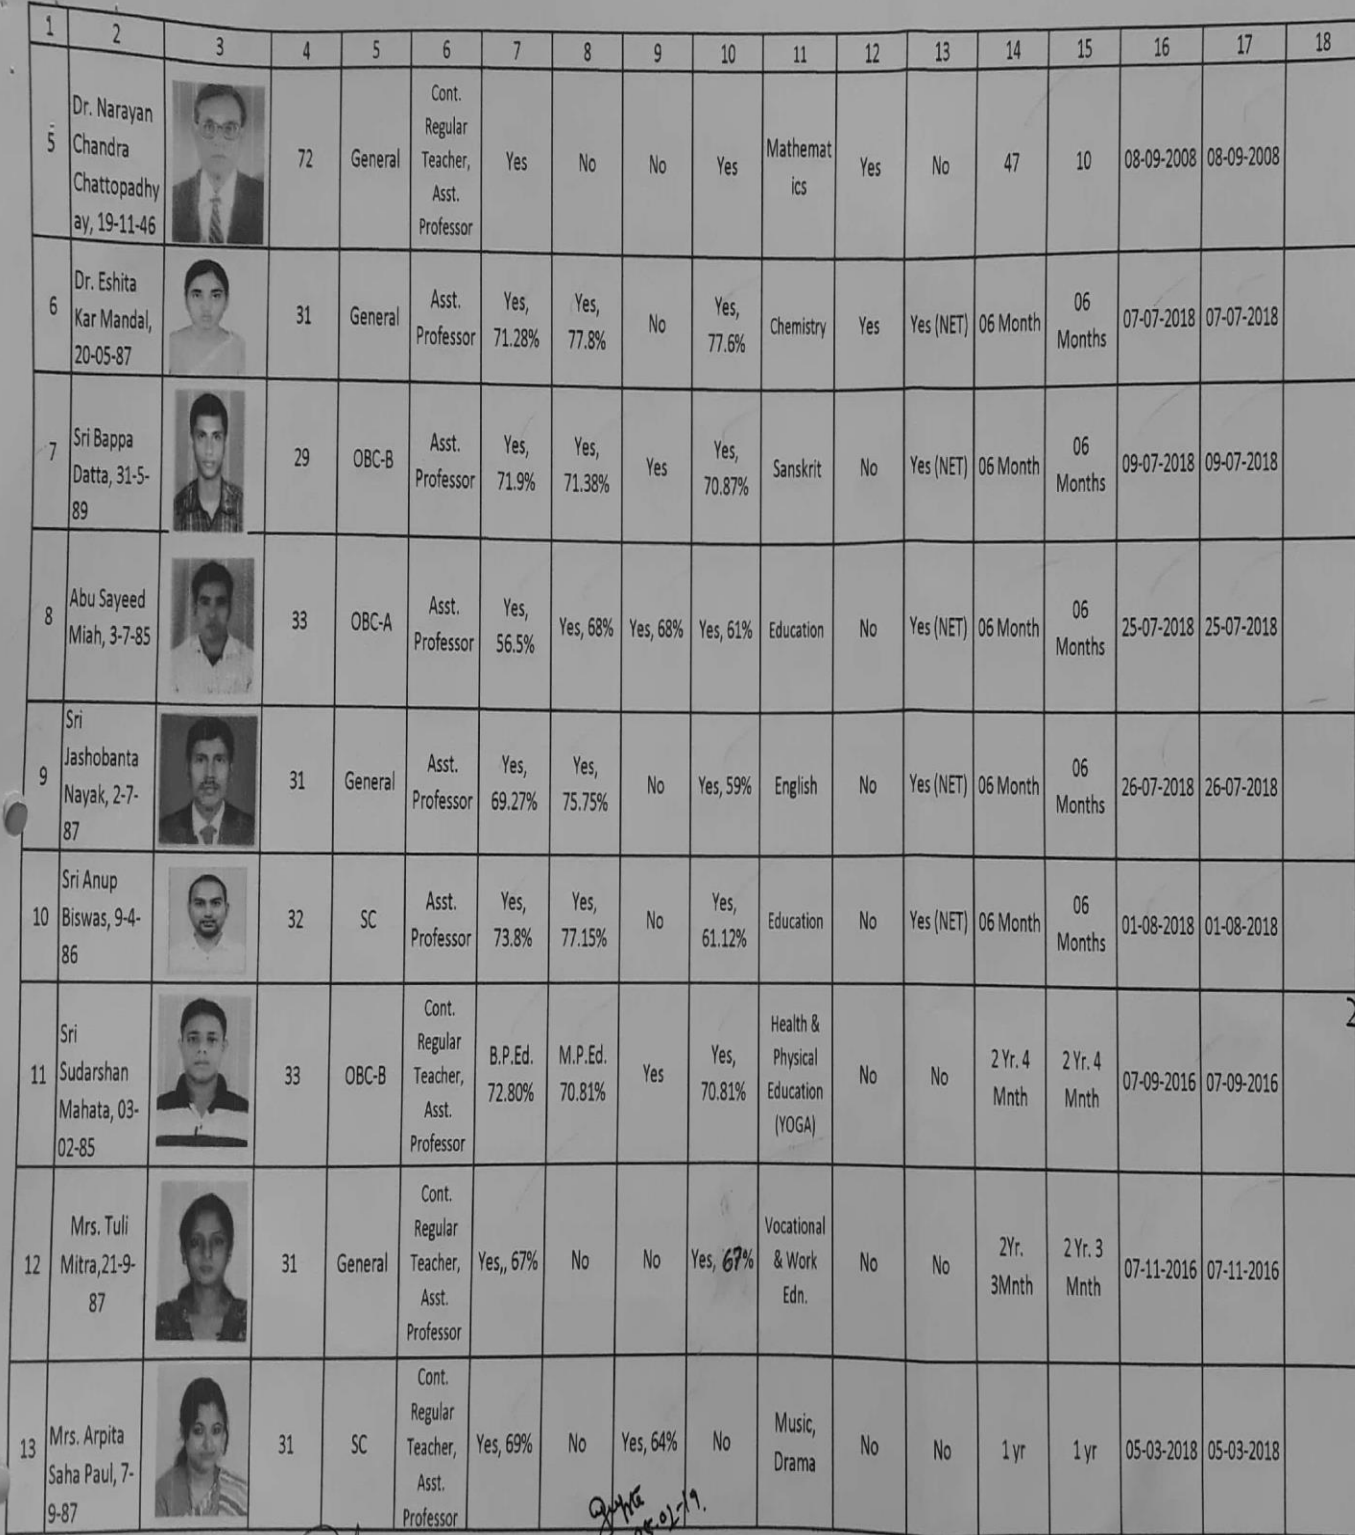 1 2 3 4 5 6 7 8 9 10 11 12 13 14 15 16 17 18
5 Dr. Narayan Chandra Chattopadhyay, 19-11-46 72 General Cont. Regular Teacher, Asst. Professor Yes No No Yes Mathematics Yes No 47 10 08-09-2008 08-09-2008
6 Dr. Eshita Kar Mandal, 20-05-87 31 General Asst. Professor Yes, 71.28% Yes, 77.8% No Yes, 77.6% Chemistry Yes Yes (NET) 06 Month 06 Months 07-07-2018 07-07-2018
7 Sri Bappa Datta, 31-5-89 29 OBC-B Asst. Professor Yes, 71.9% Yes, 71.38% Yes Yes, 70.87% Sanskrit No Yes (NET) 06 Month 06 Months 09-07-2018 09-07-2018
8 Abu Sayeed Miah, 3-7-85 33 OBC-A Asst. Professor Yes, 56.5% Yes, 68% Yes, 68% Yes, 61% Education No Yes (NET) 06 Month 06 Months 25-07-2018 25-07-2018
9 Sri Jashobanta Nayak, 2-7-87 31 General Asst. Professor Yes, 69.27% Yes, 75.75% No Yes, 59% English No Yes (NET) 06 Month 06 Months 26-07-2018 26-07-2018
10 Sri Anup Biswas, 9-4-86 32 SC Asst. Professor Yes, 73.8% Yes, 77.15% No Yes, 61.12% Education No Yes (NET) 06 Month 06 Months 01-08-2018 01-08-2018
11 Sri Sudarshan Mahata, 03-02-85 33 OBC-B Cont. Regular Teacher, Asst. Professor B.P.Ed. 72.80% M.P.Ed. 70.81% Yes Yes, 70.81% Health & Physical Education (YOGA) No No 2 Yr. 4 Mnth 2 Yr. 4 Mnth 07-09-2016 07-09-2016 2
12 Mrs. Tuli Mitra,21-9-87 31 General Cont. Regular Teacher, Asst. Professor Yes,, 67% No No Yes, 67% Vocational & Work Edn. No No 2Yr. 3Mnth 2 Yr. 3 Mnth 07-11-2016 07-11-2016
13 Mrs. Arpita Saha Paul, 7-9-87 31 SC Cont. Regular Teacher, Asst. Professor Yes, 69% No Yes, 64% No Music, Drama No No 1 yr 1 yr 05-03-2018 05-03-2018